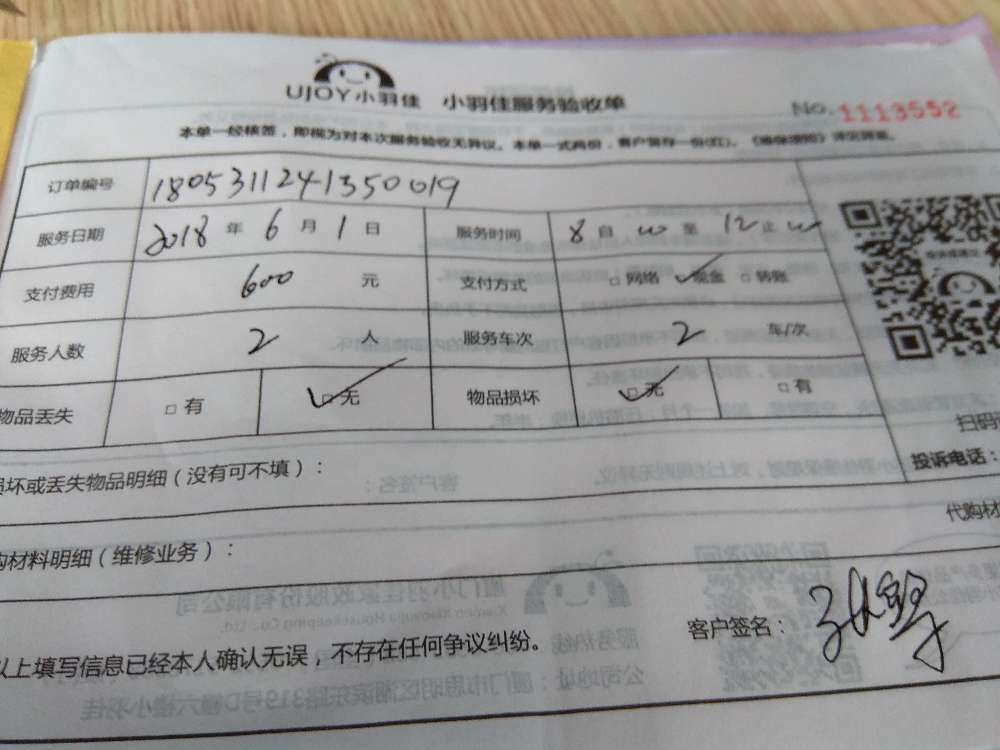 UJOY小羽佳 小羽佳服务验收单
No. 1113552
本单一经核签，即视为对本次服务验收无异议。本单一式两份，客户留存一份(红)。
订单编号 1805311241350019
服务日期 2018 年 6 月 1 日 服务时间 8 自 至 12 止
支付费用 600 元 支付方式 □网络 ✓现金 □转账
服务人数 2 人 服务车次 2 车/次
物品丢失 □有 ✓无 物品损坏 ✓无 □有
扫码
损坏或丢失物品明细（没有可不填）：
投诉电话：
代购材
购材料明细（维修业务）：
客户签名：
以上填写信息已经本人确认无误，不存在任何争议纠纷。